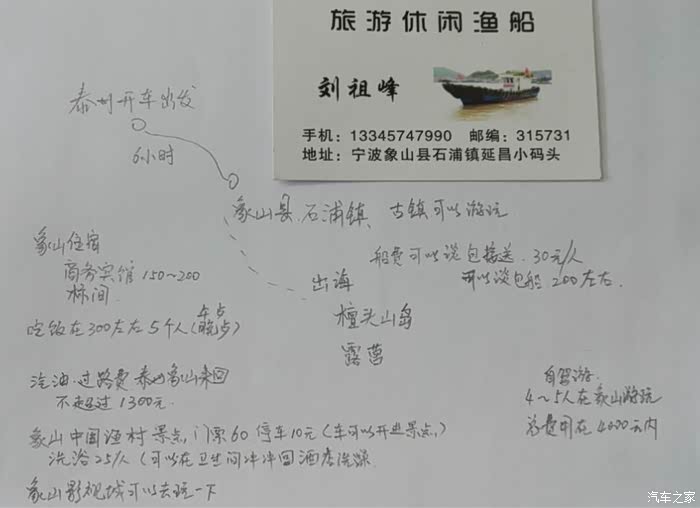 旅游休闲渔船
刘祖峰
手机：13345747990 邮编：315731
地址：宁波象山县石浦镇延昌小码头
泰州开车出发
6小时
象山县.石浦镇、古镇可以游玩
船费可以谈包接送.30元/人
可以谈包船 200左右.
出海
檀头山岛
露营
象山住宿
商务宾馆 150~200
标间.
午点
吃饭在300左右5个人(晚点)
汽油.过路费 泰州象山来回
不超过1300元.
自驾游.
4~5人在象山游玩
总费用在4000元内
象山中国渔村景点,门票60 停车10元(车可以开进景点,)
洗浴25/人(可以在卫生间冲冲回酒店洗澡.
象山影视城可以去玩一下
汽车之家